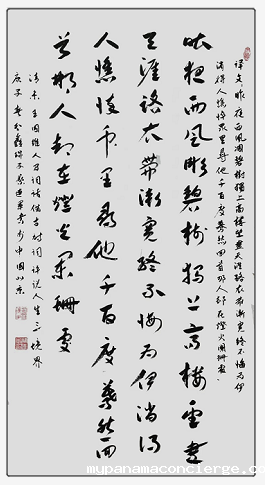 译文:昨夜西风凋碧树独上高楼望尽天涯路衣带渐宽终不悔为伊
消得人憔悴众里寻他千百度蓦然回首那人却在灯火阑珊处
昨夜西风凋碧树独上高楼望尽
天涯路衣带渐宽终不悔为伊消得
人憔悴众里寻他千百度蓦然回
首那人却在灯火阑珊处
王国维人间词话借古时词评说人生三境界
庚子
书于中国
mypanamaconcierge.com